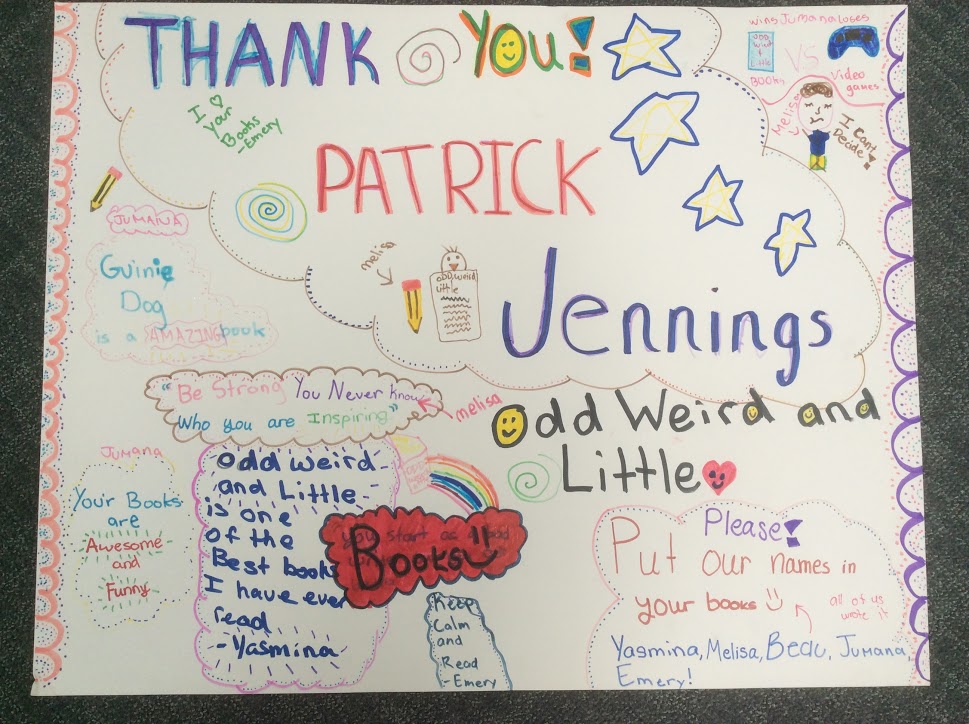 THANK YOU!
PATRICK
Jennings
Odd Weird and
Little
I
your
Books
-Emery
wins Jumana loses
ODD
Weird
&
Little
VS
Books
Video
games
Melisa
I Can't
Decide!
JUMANA
Guinie
Dog
is a AMAZING book
melisa
odd, weird,
Little
"Be Strong You Never know
Who you are Inspiring"
melisa
JUMANA
Your Books
are
Awesome
and
Funny
Odd weird
and Little
is one
of the
Best books
I have ever
read
-Yasmina
you start as
Books!!
Keep
Calm
and
Read
-Emery
Please!
Put our names in
your books
all of us
wrote it
Yasmina, Melisa, Beau, Jumana,
Emery!